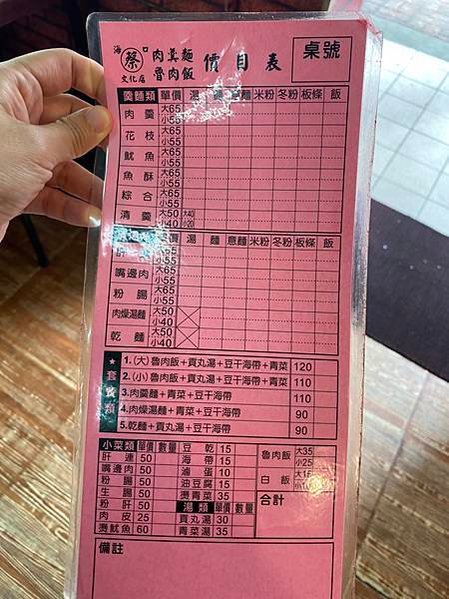 海口
蔡
文化店
肉羹麵
魯肉飯
價目表
桌號
羹麵類 單價 湯 麵 意麵 米粉 冬粉 板條 飯
肉羹 大65 小55
花枝 大65 小55
魷魚 大65 小55
魚酥 大65 小55
綜合 大65 小55
清羹 大50 小40 大40 小20
單價 湯 麵 意麵 米粉 冬粉 板條 飯
肝
嘴邊肉 大65 小55
粉腸 大65 小55
肉燥湯麵 大50 小40
乾麵 大50 小40
★套餐類
1.(大)魯肉飯+貢丸湯+豆干海帶+青菜 120
2.(小)魯肉飯+貢丸湯+豆干海帶+青菜 110
3.肉羹麵+青菜+豆干海帶 110
4.肉燥湯麵+青菜+豆干海帶 90
5.乾麵+貢丸湯+豆干海帶 90
小菜類 單價 數量 豆乾 15 魯肉飯 大35 小25
肝連 50 海帶 15
嘴邊肉 50 滷蛋 10 白飯 大15 小10
粉腸 50 油豆腐 15
生腸 50 燙青菜 35 合計
粉肝 50 湯類 單價 數量
肉皮 25 貢丸湯 30
燙魷魚 60 青菜湯 35
備註